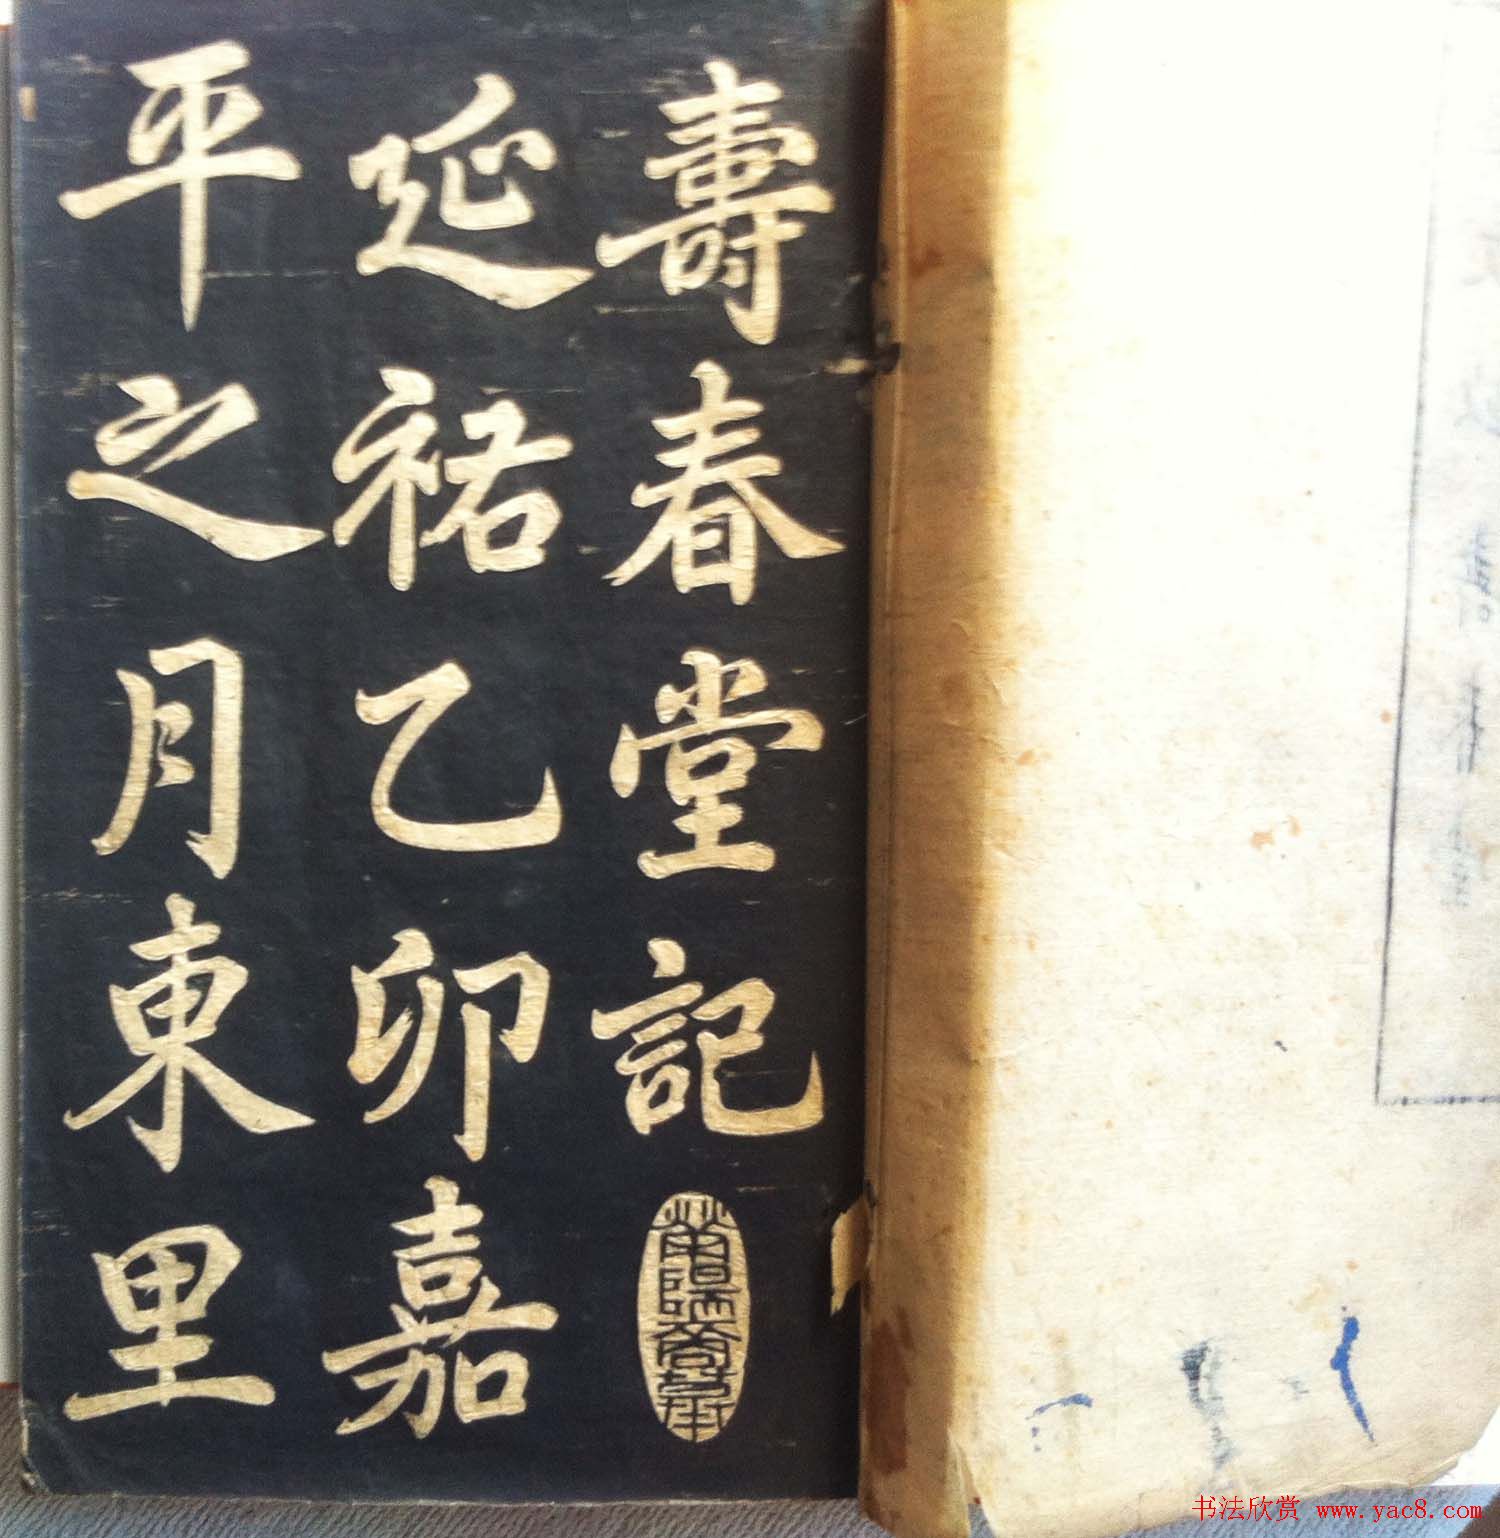 壽春堂記
延祐乙卯嘉
平之月東里
书法欣赏 www.yac8.com